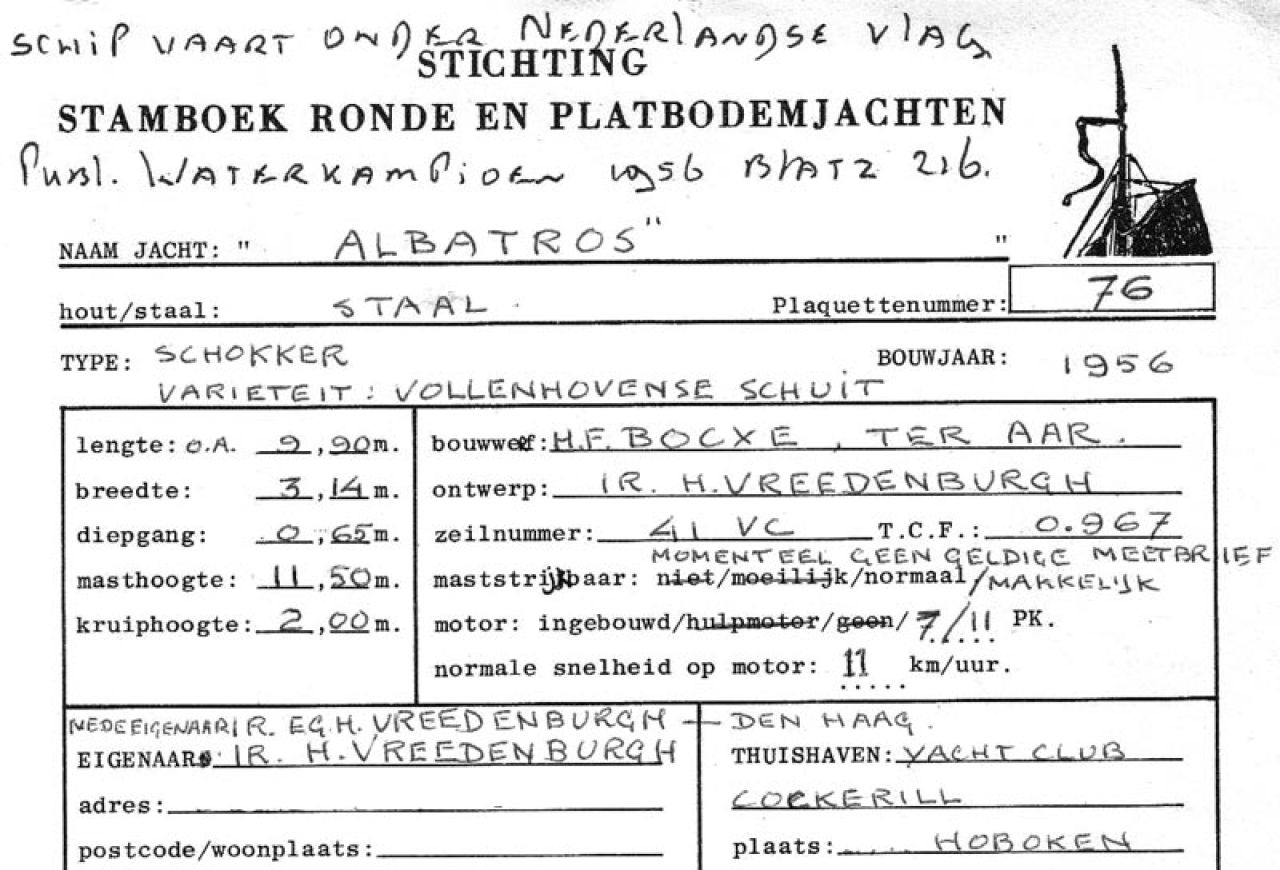 SCHIP VAART ONDER NEDERLANDSE VLAG
STICHTING
STAMBOEK RONDE EN PLATBODEMJACHTEN
Publ. WATERKAMPIOEN 1956 BLATZ 216.
NAAM JACHT: " ALBATROS" "
hout/staal: STAAL. Plaquettenummer: 76
TYPE: SCHOKKER BOUWJAAR: 1956
VARIETEIT: VOLLENHOVENSE SCHUIT
lengte: O.A. 9,90m. bouwwerf: H.F. BOCXE, TER AAR.
breedte: 3,14m. ontwerp: IR. H. VREEDENBURGH
diepgang: 0,65m. zeilnummer: 41 VC T.C.F.: 0.967
MOMENTEEL GEEN GELDIGE MEETBRIEF
masthoogte: 11,50m. maststrijkbaar: niet/moeilijk/normaal/MAKKELIJK
kruiphoogte: 2,00m. motor: ingebouwd/hulpmotor/geen/ 7/11 PK.
normale snelheid op motor: 11 km/uur.
MEDEEIGENAAR IR. EG.H. VREEDENBURGH — DEN HAAG.
EIGENAAR: IR. H. VREEDENBURGH THUISHAVEN: YACHT CLUB
adres: COCKERILL
postcode/woonplaats: plaats: HOBOKEN